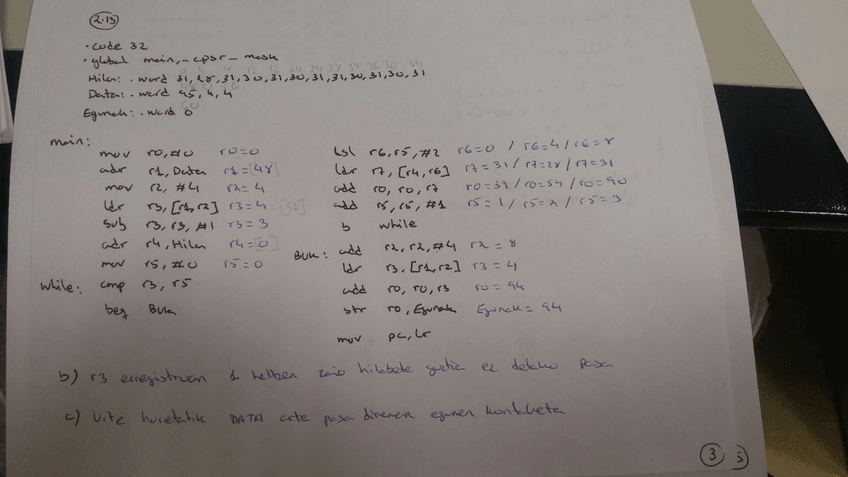 2.15
.code 32
.global main,__cpsr_mask
Hilak: .word 31,28,31,30,31,30,31,31,30,31,30,31
Data: .word 95,4,4
Egunak: .word 0
main:
mov r0,#0 r0=0
adr r1,Data r1=[48]
mov r2,#4 r2=4
ldr r3,[r1,r2] r3=4 [52]
sub r3,r3,#1 r3=3
adr r4,Hilak r4=[0]
mov r5,#0 r5=0
while: cmp r3,r5
beq Buk
lsl r6,r5,#2 r6=0 / r6=4 / r6=8
ldr r7,[r4,r6] r7=31 / r7=28 / r7=31
add r0,r0,r7 r0=31 / r0=59 / r0=90
add r5,r5,#1 r5=1 / r5=2 / r5=3
b while
Buk: add r2,r2,#4 r2=8
ldr r3,[r1,r2] r3=4
add r0,r0,r3 r0=94
str r0,Egunak Egunak=94
mov pc,lr
b) r3 erregistroan 1 kentzen zaio hilabete guztia ez delako pasa
c) Urte hasieratik DATA arte pasa direnen egunen kontaketa
3 5